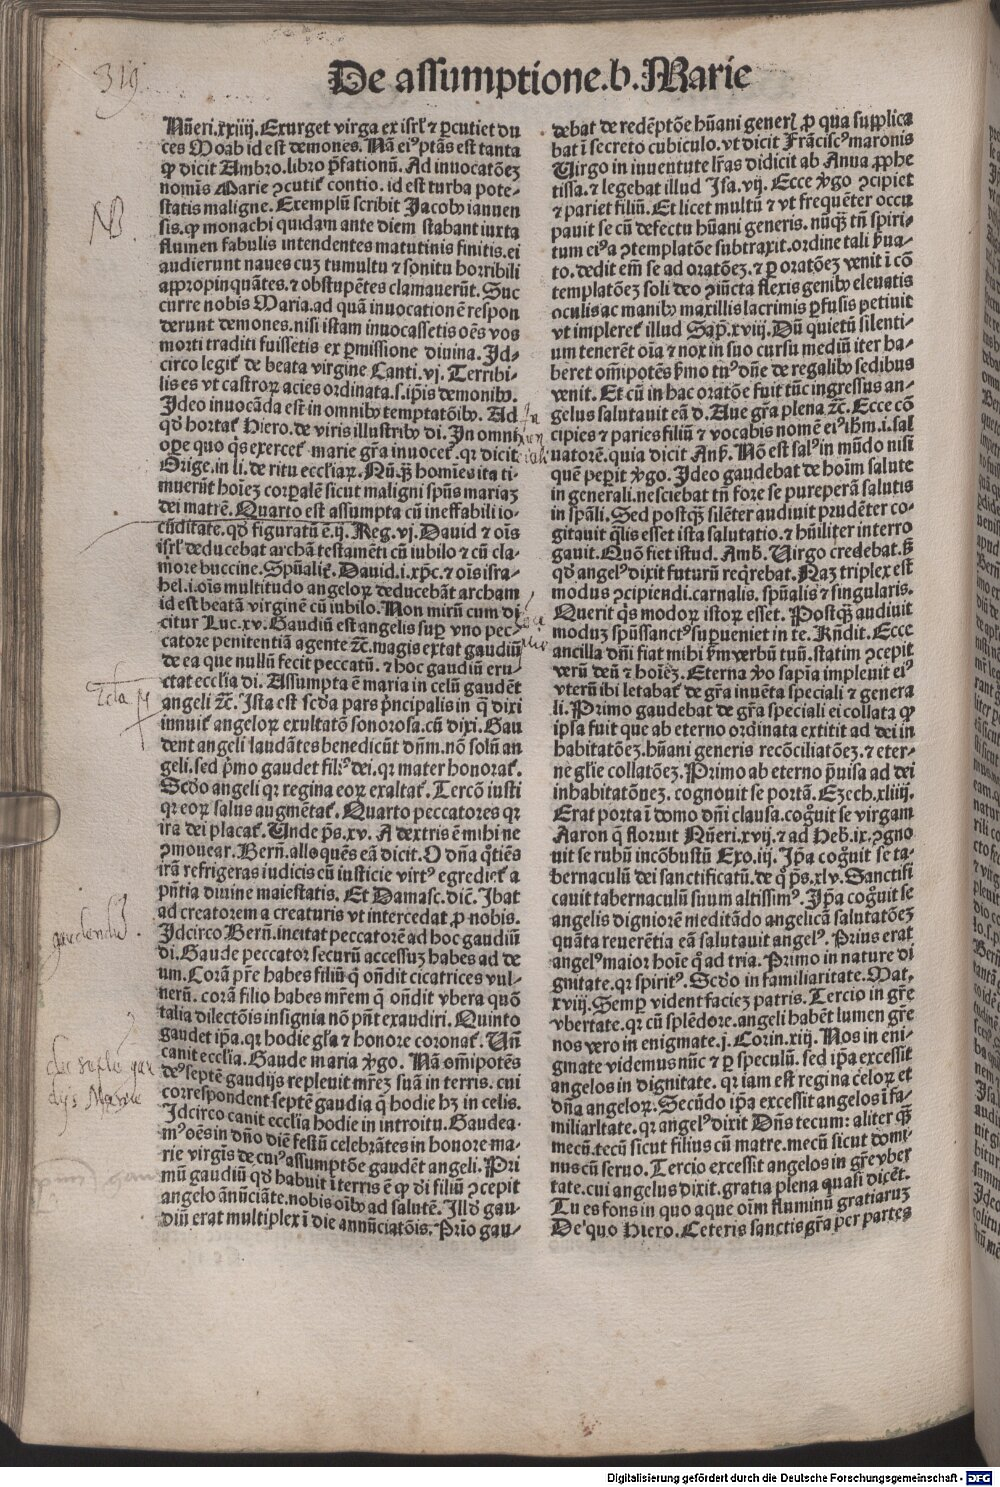 319
De assumptione.b.Marie
Nũeri.xxiiij.Exurget virga ex isrl' ⁊ ꝑcutiet du
ces Moab id est demones. Nã ei⁹ ptãs est tanta
ꝙ dicit Ambro.libro p̃fationũ. Ad inuocatõeʒ
nomīs Marie ꝯcutiť contio.id est turba pote-
statis maligne. Exemplũ scribit Jacobꝰ ianuen
sis.ꝙ monachi quidam ante diem stabant iuxta
flumen fabulis intendentes matutinis finitis.ei
audierunt naues cuʒ tumultu ⁊ sonitu horribili
appropinquãtes.⁊ obstupẽtes clamauerũt. Suc
curre nobis Maria.ad quã inuocationẽ respon
derunt demones.nisi istam inuocassetis oẽs vos
morti traditi fuissetis ex ꝑmissione diuina. Jd-
circo legiť de beata virgine Canti.vj. Terribi-
lis es vt castroꝝ acies ordinata.s.ip̃is demonibꝰ.
Jdeo inuocãda est in omnibꝰ temptatõibꝰ. Ad
qd̃ hortať Hiero.de viris illustribꝰ di. Jn omni
oꝑe quo q̃s exerceť marie gr̃a inuoceť.qꝛ dicit
Orige.in li.de ritu eccl̃iaꝝ. Nũ.q̃ homĩes ita ti-
muerũt hoĩeʒ corꝑalẽ sicut maligni sp̃us mariaʒ
dei matrẽ. Quarto est assumpta cũ ineffabili io-
cũditate.qd̃ figuratũ ẽ.ij. Reg.vj. Dauid ⁊ oĩs
isrl' deducebat archã testamẽti cũ iubilo ⁊ cũ cla-
more buccine. Sp̃ualiť. Dauid.i.xp̃c.⁊ oĩs isra-
hel.i.oĩs multitudo angeloꝝ deducebãt archam
id est beatã virginẽ cũ iubilo. Non mirũ cum di
citur Luc.xv. Gaudiũ est angelis suꝑ vno pec-
catore penitentiã agente ⁊c̃.magis extat gaudiũ
de ea que nullũ fecit peccatũ.⁊ hoc gaudiũ eru-
ctat eccl̃ia di. Assumpta ẽ maria in celũ gaudẽt
angeli ⁊c̃. Ista est scd̃a pars p̃ncipalis in q̃ dixi
innuiť angeloꝝ exultatõ sonorosa.cũ dixi. Gau
dent angeli laudãtes benedicũt dñm.nõ solũ an
geli.sed p̃mo gaudet fili⁹ dei.qꝛ mater honorať.
Scd̃o angeli qꝛ regina eoꝝ exaltať. Tercõ iusti
qꝛ eoꝝ salus augmẽtať. Quarto peccatores qꝛ
ira dei placať. Unde p̃s.xv. A dextris ẽ mihi ne
ꝯmouear. Berñ.alloquẽs eã dicit. O dña q̃tiẽs
irã refrigeras iudicis cũ iusticie virt⁹ egrediť a
p̃ntia diuine maiestatis. Et Damasc.dic̃. Ibat
ad creatorem a creaturis vt intercedat ꝓ nobis.
Jdcirco Berñ.incitat peccatorẽ ad hoc gaudiũ
di. Gaude peccator securũ accessuʒ habes ad de
um. Corã pr̃e habes filiũ q̃ oñdit cicatrices vul-
nerũ.corã filio habes mr̃em q̃ oñdit vbera quõ
talia dilectõis insignia nõ pñt exaudiri. Quinto
gaudet ip̃a.qꝛ hodie gl'a ⁊ honore coronať. Uñ
canit eccl̃ia. Gaude maria ꝟgo. Nã om̃ipotẽs
de⁹ septẽ gaudijs repleuit mr̃eʒ suã in terris.cui
correspondent septẽ gaudia q̃ hodie hʒ in celis.
Jdcirco canit eccl̃ia hodie in introitu. Gaudea-
m⁹ oẽs in dño diẽ festũ celebrãtes in honore ma-
rie virgĩs de cui⁹ assumptõe gaudẽt angeli. Pri
mũ gaudiũ qd̃ habuit ĩ terris ẽ ꝙ di filiũ ꝯcepit
angelo ãnũciãte.nobis oĩbꝰ ad salutẽ. Illd̃ gau-
diũ erat multiplex ĩ die annũciatõis. Prĩo gau-
debat de redẽptõe hũani generĩ ꝓ qua supplica
bat ĩ secreto cubiculo.vt dicit Frãcisc⁹ maronis
Virgo in iuuentute lr̃as didicit ab Anua ꝓphe
tissa.⁊ legebat illud Isa.vij. Ecce ꝟgo ꝯcipiet
⁊ pariet filiũ. Et licet multũ ⁊ vt frequẽter occu
pauit se cũ defectu hũani generis.nũq̃ tñ spiri-
tum ei⁹ a ꝯtemplatõe subtraxit.ordine tali p̃ua-
to.dedit em̃ se ad oratõeʒ.⁊ ꝑ oratõeʒ venit ĩ cõ
templatõeʒ soli deo ꝯiũcta flexis genibꝰ eleuatis
oculis ac manibꝰ maxillis lacrimis ꝑfusis petiuit
vt impleret illud Sap̃.xviij. Dũ quietũ silenti-
um tenerẽt oĩa ⁊ nox in suo cursu mediũ iter ha-
beret om̃ipotẽs ẽmo tu⁹ dñe de regalibꝰ sedibus
venit. Et cũ in hac oratõe fuit tũc ingressus an-
gelus salutauit eã d. Aue gr̃a plena ⁊c̃. Ecce cõ
cipies ⁊ paries filiũ ⁊ vocabis nomẽ ei⁹ ihm̃.i.sal
uatorẽ.quia dicit Anẜ. Nõ est sal⁹ in mũdo nisi
quẽ peꝑit ꝟgo. Jdeo gaudebat de hoĩm salute
in generali.nesciebat tñ fore se puerperã salutis
in sp̃ali. Sed postq̃ silẽter audiuit prudẽter co-
gitauit q̃lis esset ista salutatio.⁊ hũiliter interro
gauit. Quõ fiet istud. Amb̃. Uirgo credebat.s̃
qd̃ angel⁹ dixit futurũ req̃rebat. Naʒ triplex est
modus ꝯcipiendi.carnalis.sp̃ualis ⁊ singularis.
Querit q̃s modoꝝ istoꝝ esset. Postq̃ audiuit
moduʒ sp̃ussanct⁹ suꝑueniet in te. Rñdit. Ecce
ancilla dñi fiat mihi ẜm verbũ tuũ.statim ꝯcepit
verũ deũ ⁊ hoĩeʒ. Eterna ꝟo sapĩa impleuit ei⁹
vterũ ibi letabať de gr̃a inuẽta speciali ⁊ genera
li. Primo gaudebat de gr̃a speciali ei collata ꝙ
ipsa fuit que ab eterno ordinata extitit ad dei in
habitatõeʒ.hũani generis recõciliatõeʒ.⁊ eter-
ne gl'ie collatõeʒ. Primo ab eterno p̃uisa ad dei
inhabitatõneʒ.cognouit se portã. Ezech.xliiij.
Erat porta ĩ domo dñi clausa.cog̃uit se virgam
Aaron q̃ floruit Nũeri.xvij.⁊ ad Heb̃.ix.ꝯgno
uit se rubũ incõbustũ Exo.iij. Ip̃a cog̃uit se ta-
bernaculũ dei sanctificatũ.de q̃ p̃s.xlv. Sanctifi
cauit tabernaculũ suum altissim⁹. Ip̃a cog̃uit se
angelis digniorẽ meditãdo angelicã salutatõeʒ
quãta reuerẽtia eã salutauit angel⁹. Prius erat
angel⁹ maior hoĩe q̃ ad tria. Primo in nature di
gnitate.qꝛ spirit⁹. Scd̃o in familiaritate. Mat.
xviij. Semꝑ vident facieʒ patris. Tercio in gr̃e
vbertate.qꝛ cũ splẽdore.angeli habẽt lumen gr̃e
nos vero in enigmate.j. Corin.xiij. Nos in eni-
gmate videmus nũc ⁊ ꝑ speculũ.sed ip̃a excessit
angelos in dignitate.qꝛ iam est regina celoꝝ et
dña angeloꝝ. Secũdo ip̃a excessit angelos ĩ fa-
miliaritate.qꝛ angel⁹ dixit Dñs tecum: aliter q̃
mecũ.tecũ sicut filius cũ matre.mecũ sicut domi-
nus cũ seruo. Tercio excessit angelos in gr̃e vber
tate.cui angelus dixit.gratia plena quasi dicẽt.
Tu es fons in quo aque oĩm fluminũ gratiaruʒ
De quo Hiero. Ceteris sanctis gr̃a per partes
NB.
gaudendũ.
de septẽ gau
dijs Marie
Digitalisierung gefördert durch die Deutsche Forschungsgemeinschaft - DFG